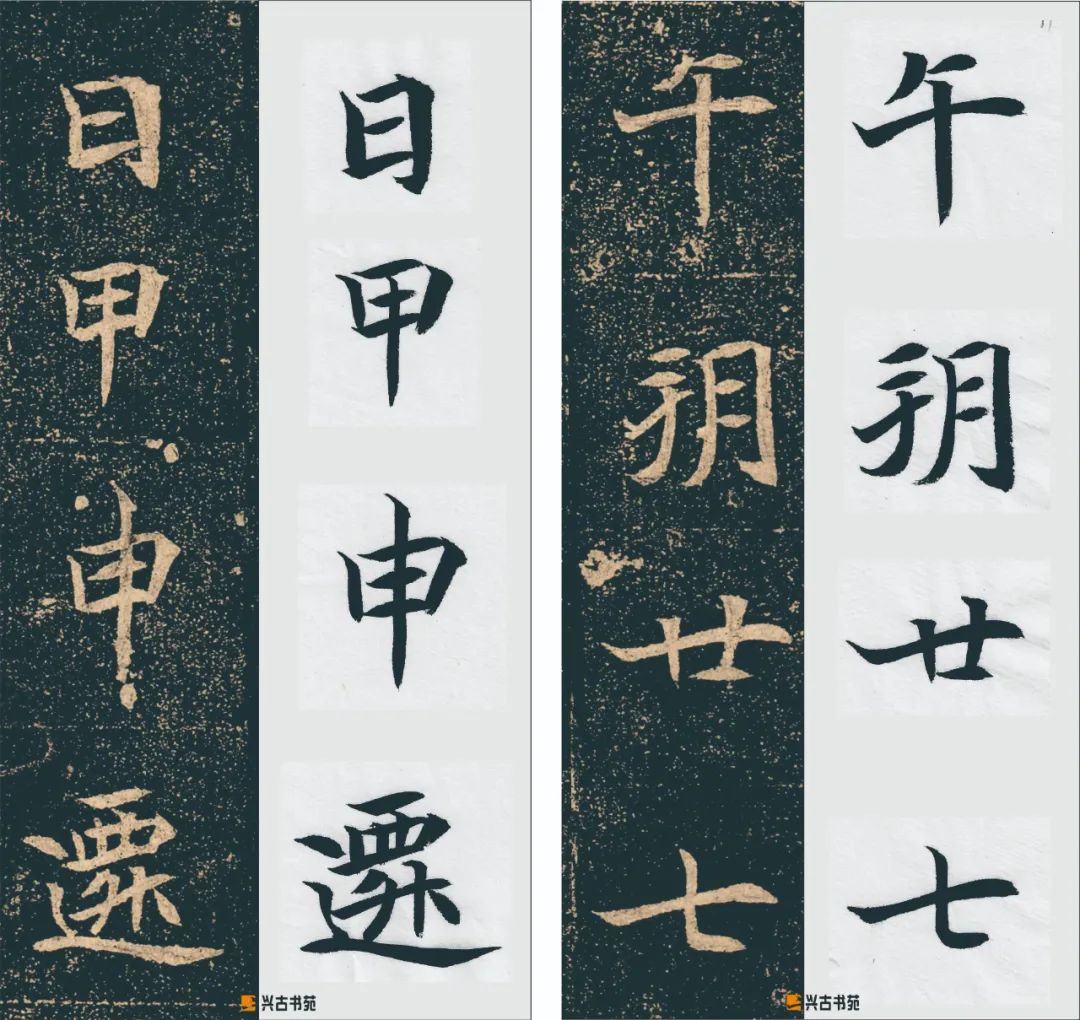 午朔廿七
午朔廿七
日甲申遷
日甲申遷
兴古书苑
兴古书苑